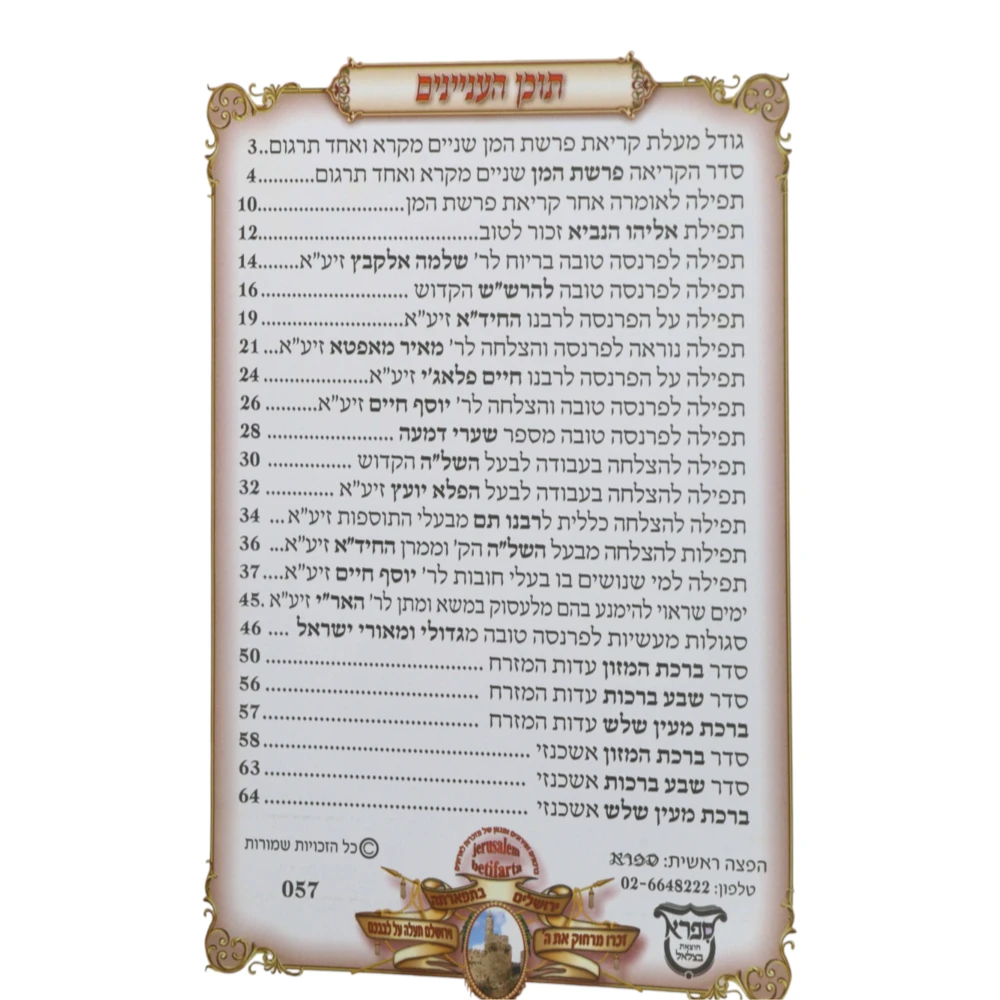 תוכן העניינים
גודל מעלת קריאת פרשת המן שניים מקרא ואחד תרגום..3
סדר הקריאה פרשת המן שניים מקרא ואחד תרגום...........4
תפילה לאומרה אחר קריאת פרשת המן......................10
תפילת אליהו הנביא זכור לטוב.................................12
תפילה לפרנסה טובה בריוח לר' שלמה אלקבץ זיע"א........14
תפילה לפרנסה טובה להרש"ש הקדוש ......................16
תפילה על הפרנסה לרבנו החיד"א זיע"א......................19
תפילה נוראה לפרנסה והצלחה לר' מאיר מאפטא זיע"א...21
תפילה על הפרנסה לרבנו חיים פלאג'י זיע"א................24
תפילה לפרנסה טובה והצלחה לר' יוסף חיים זיע"א..........26
תפילה לפרנסה טובה מספר שערי דמעה ...................28
תפילה להצלחה בעבודה לבעל השל"ה הקדוש .............30
תפילה להצלחה בעבודה לבעל הפלא יועץ זיע"א ............32
תפילה להצלחה כללית לרבנו תם מבעלי התוספות זיע"א...34
תפילות להצלחה מבעל השל"ה הק' וממרן החיד"א זיע"א...36
תפילה למי שנושים בו בעלי חובות לר' יוסף חיים זיע"א....37
ימים שראוי להימנע בהם מלעסוק במשא ומתן לר' האר"י זיע"א.45
סגולות מעשיות לפרנסה טובה מגדולי ומאורי ישראל ....46
סדר ברכת המזון עדות המזרח .................................50
סדר שבע ברכות עדות המזרח ................................56
ברכת מעין שלש עדות המזרח ................................57
סדר ברכת המזון אשכנזי ........................................58
סדר שבע ברכות אשכנזי .......................................63
ברכת מעין שלש אשכנזי .......................................64
©כל הזכויות שמורות
057
jerusalem
betifarta
ירושלים בתפארתה
זכרו מרחוק את ה'
וירושלם תעלה על לבבכם
הפצה ראשית: ספרא
טלפון: 02-6648222
ספרא
הוצאת
בצלאל